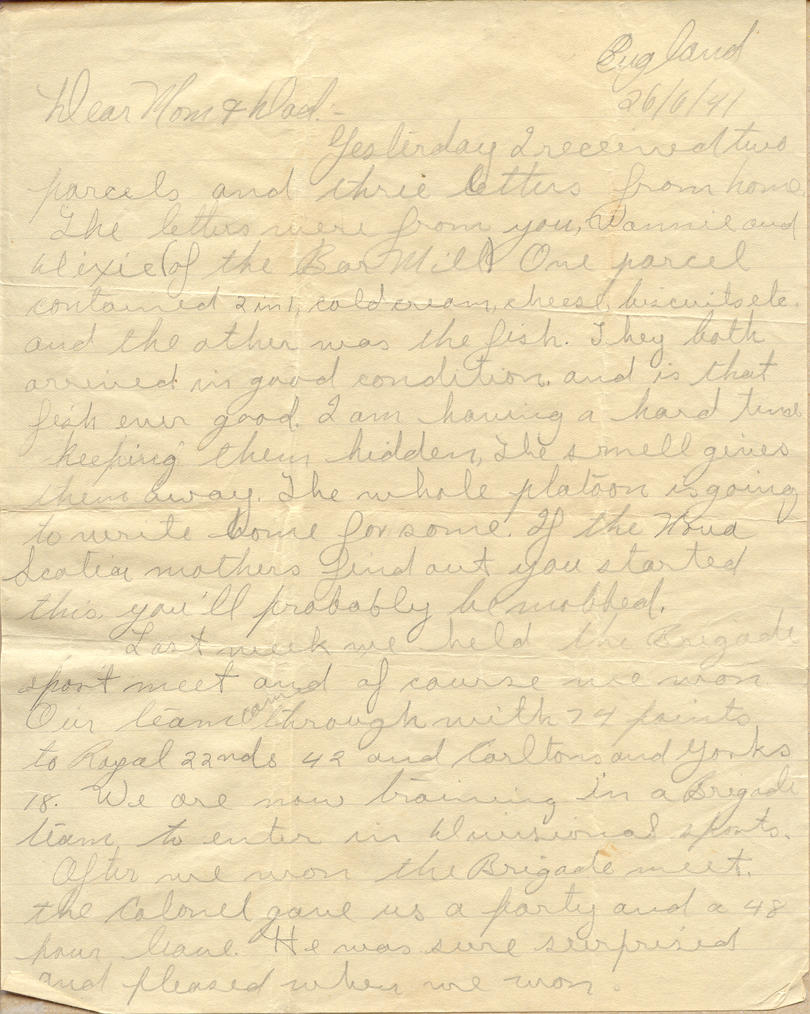 England
26/6/41
Dear Mom & Dad:-
Yesterday I received two
parcels and three letters from home.
The letters were from you, Wannie and
Dixie (of the Bar Mill) One parcel
contained 2 in 1, cold cream, cheese, biscuits etc.
and the other was the fish. They both
arrived in good condition. and is that
fish ever good. I am having a hard time
keeping them hidden, The smell gives
them away. The whole platoon is going
to write home for some. If the Nova
Scotia mothers find out you started
this, you'll probably be mobbed.
Last week we held the Brigade
sport meet and of course we won
Our team came through with 74 points
to Royal 22nds 42 and Carltons and Yorks
18. We are now training in a Brigade
team to enter in Divisional sports.
After we won the Brigade meet.
the Colonel gave us a party and a 48
hour leave. He was sure surprised
and pleased when we won.